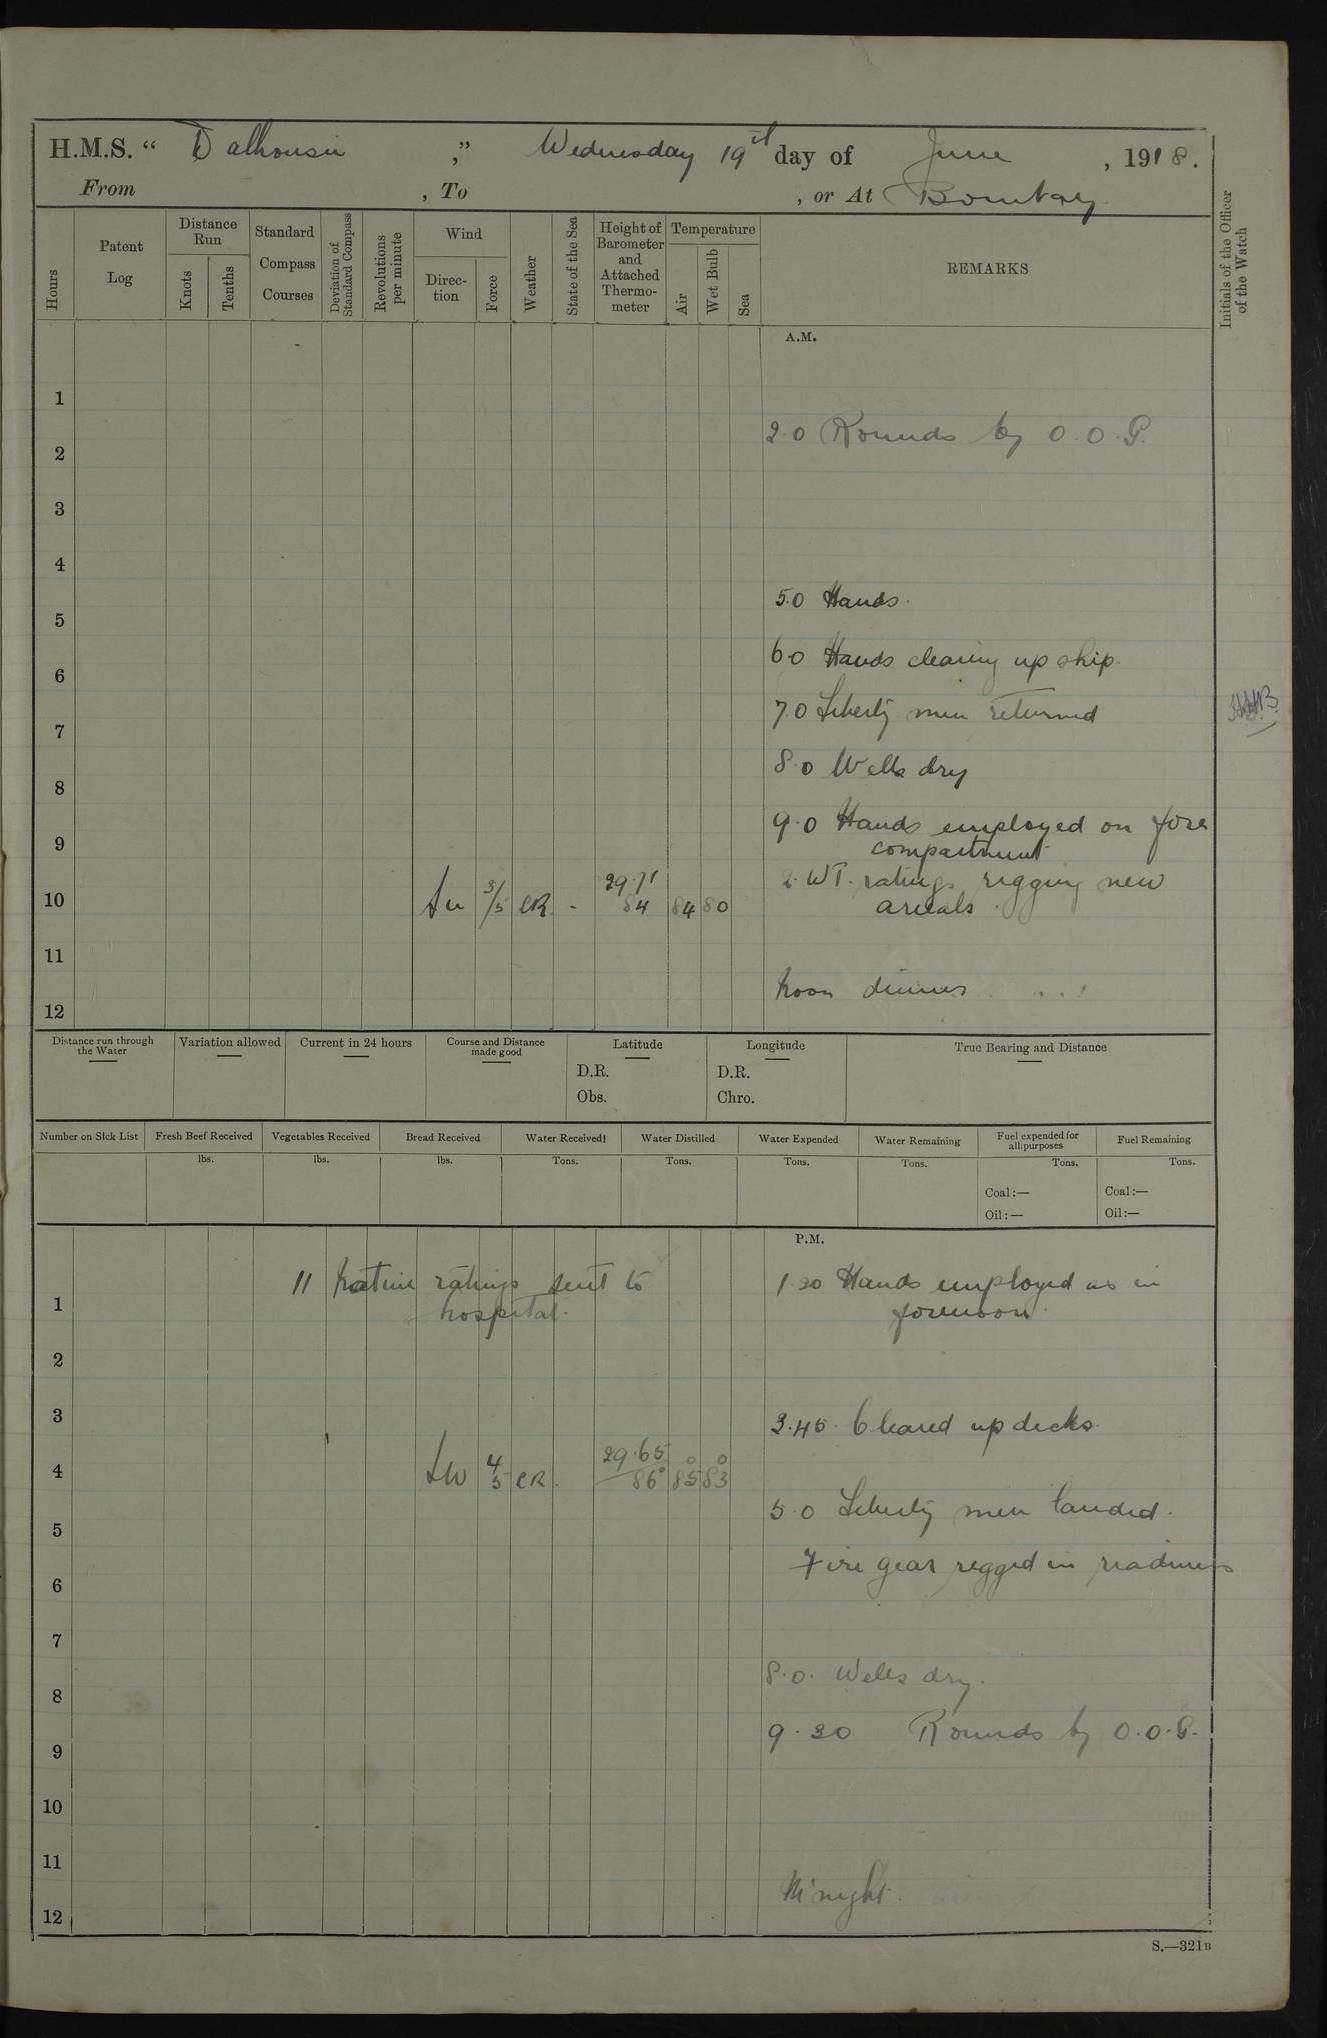 H.M.S. “ Dalhousie ,” Wednesday 19th day of June , 1918.
From , To , or At Bombay.
Hours
Patent Log
Distance Run
Knots
Tenths
Standard Compass Courses
Deviation of Standard Compass
Revolutions per minute
Wind
Direc-tion
Force
Weather
State of the Sea
Height of Barometer and Attached Thermo-meter
Temperature
Air
Wet Bulb
Sea
REMARKS
Initials of the Officer of the Watch
A.M.
1
2.0 Rounds by O.O.G.
2
3
4
5.0 Hands.
5
6.0 Hands clearing up ship.
6
7.0 Liberty men returned
7
8.0 Wells dry
8
9.0 Hands employed on fore
9
compartment
29.71
2 WT. ratings rigging new
10 3/5 CR. - 84 84 80
arieals.
11
Noon dinner
12
Distance run through the Water
Variation allowed
Current in 24 hours
Course and Distance made good
Latitude
D.R.
Obs.
Longitude
D.R.
Chro.
True Bearing and Distance
Number on Sick List
Fresh Beef Received
lbs.
Vegetables Received
lbs.
Bread Received
lbs.
Water Received
Tons.
Water Distilled
Tons.
Water Expended
Tons.
Water Remaining
Tons.
Fuel expended for all purposes
Tons.
Coal:—
Oil:—
Fuel Remaining
Tons.
Coal:—
Oil:—
P.M.
11 Native ratings sent to
hospital.
1.20 Hands employed as in
1
forenoon.
2
3
3.45. Cleared up decks.
29.65
4 SW 4/5 CR. 86° 85° 83°
5.0 Liberty men landed.
5
Fire gear regged in readiness
6
7
8.0. Wells dry.
8
9.30 Rounds by O.O.G.
9
10
11
M'night.
12
S.—321B